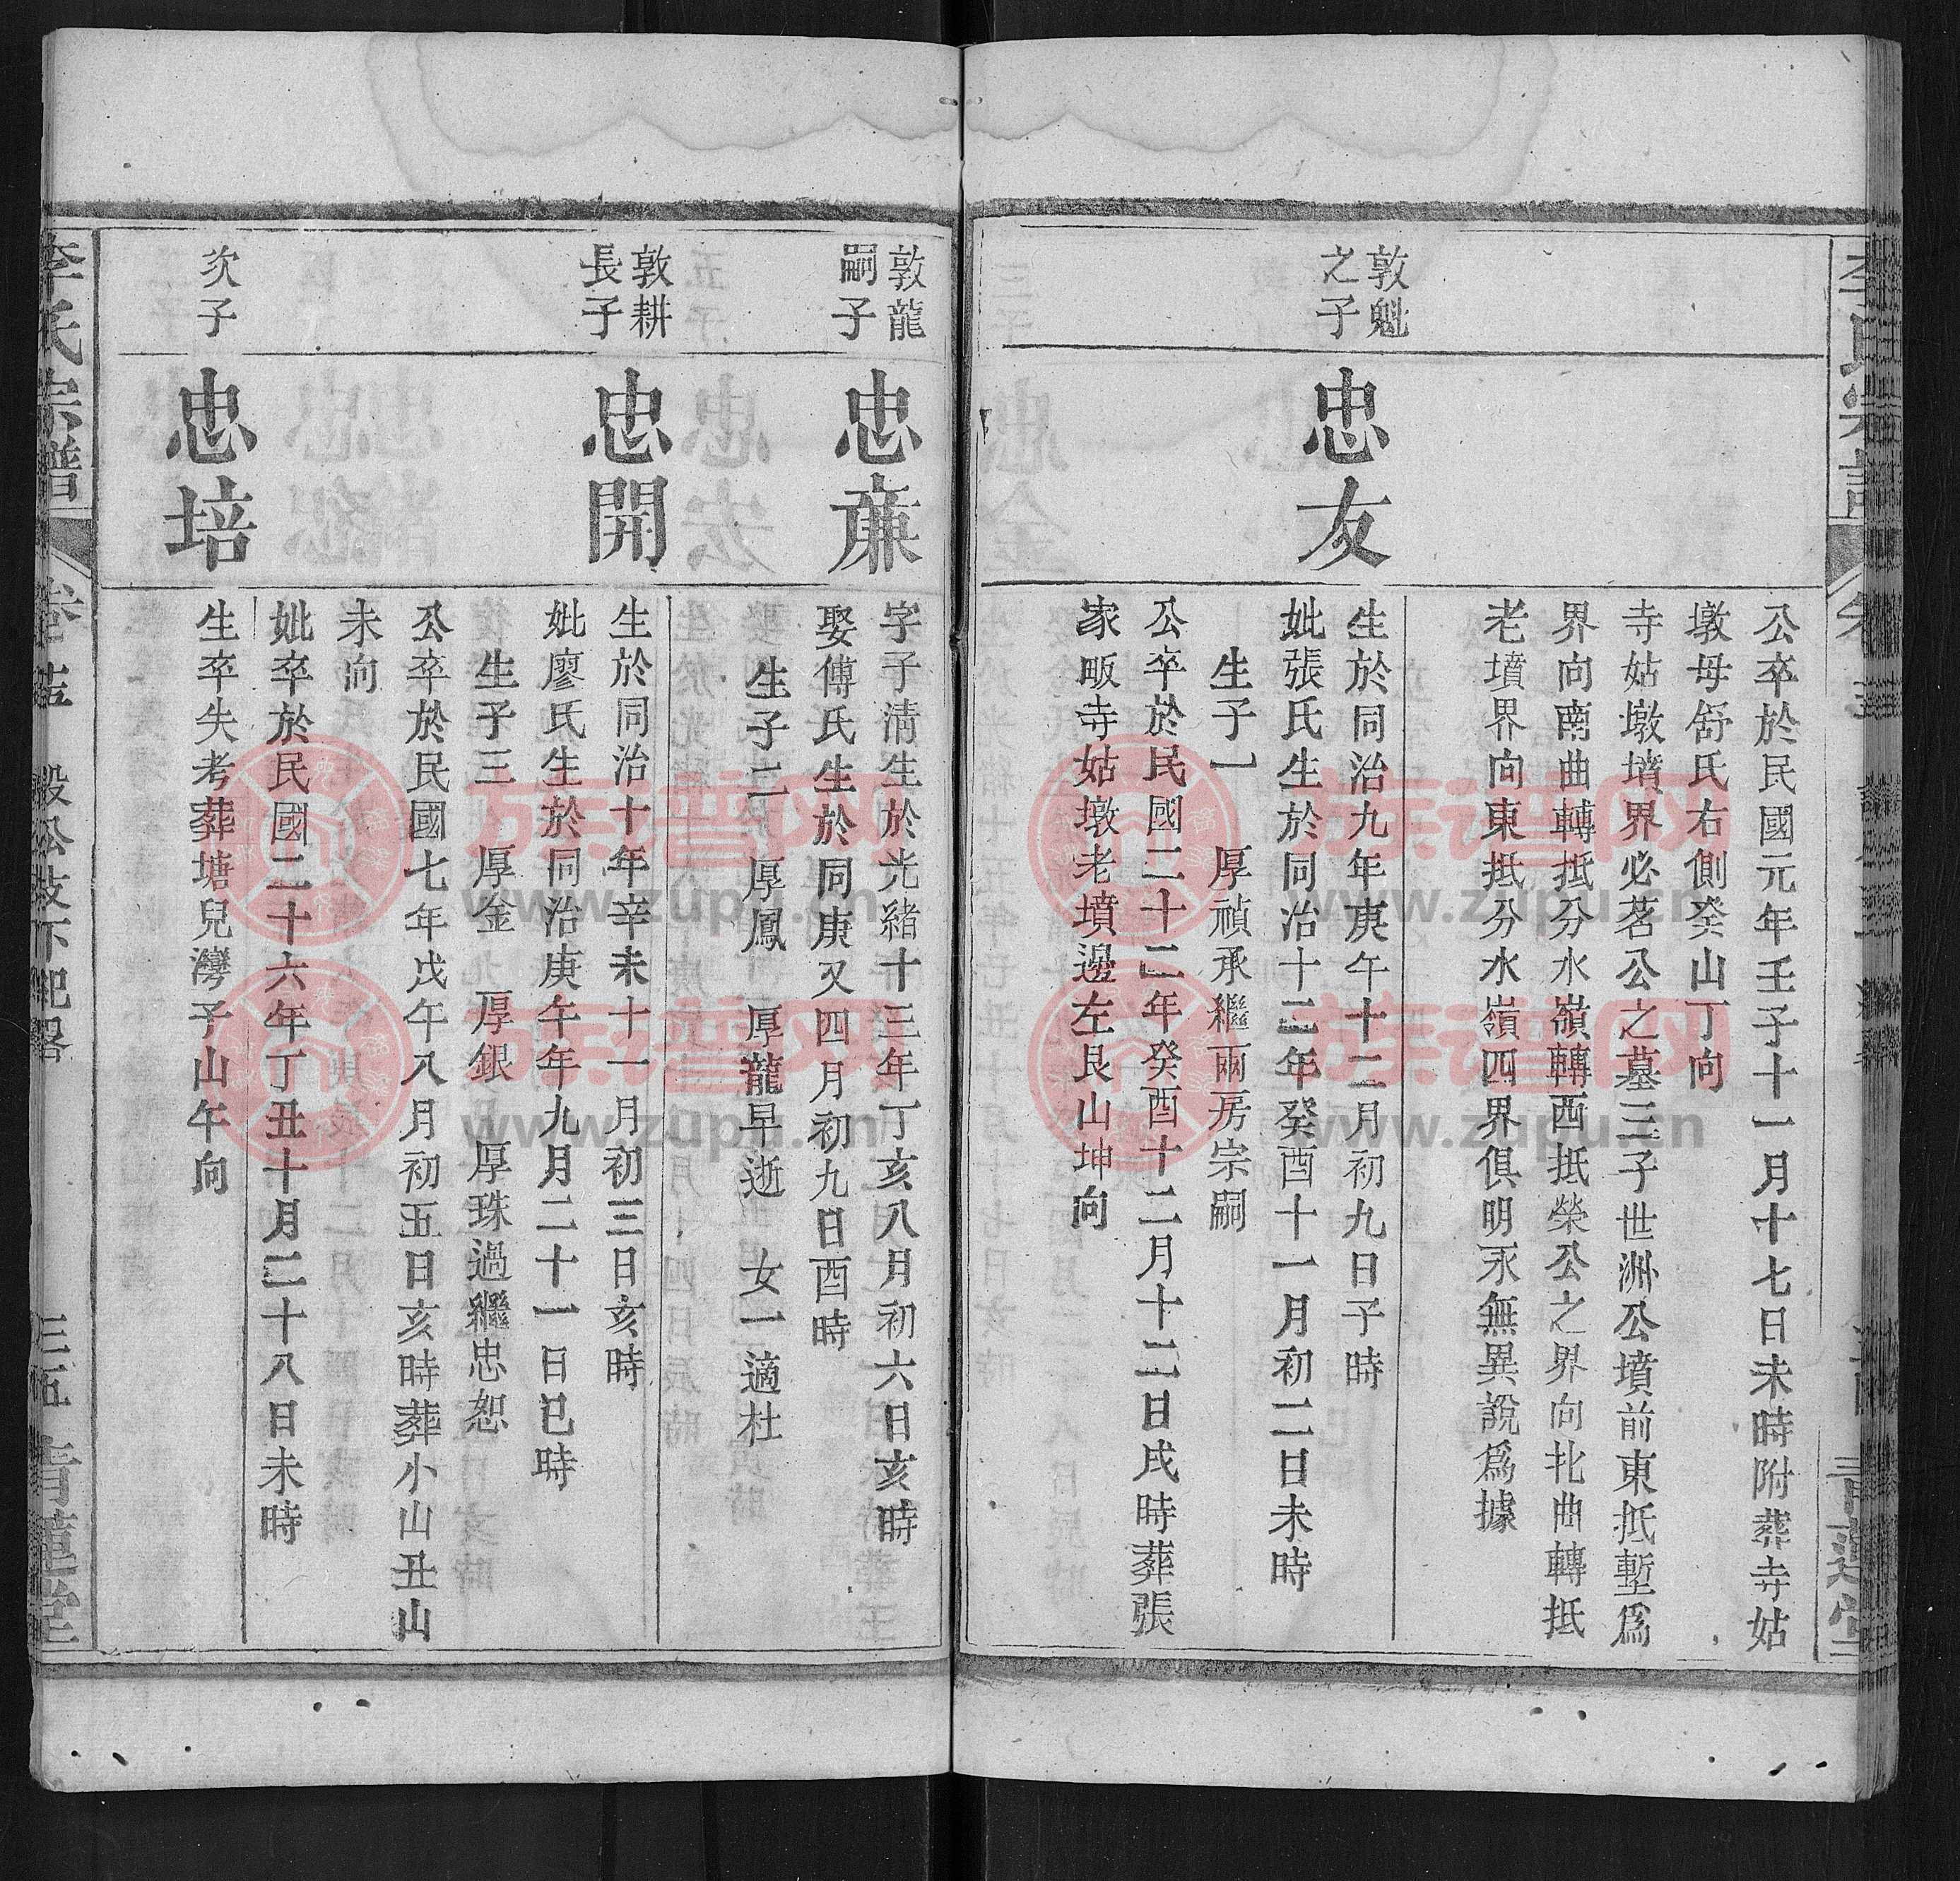 公卒於民國元年壬子十一月十七日未時附葬寺姑
墩母舒氏右側癸山丁向
寺姑墩墳界必茗公之墓三子世洲公墳前東抵塹爲
界向南曲轉抵分水嶺轉西抵榮公之界向北曲轉抵
老墳界向東抵分水嶺四界俱明永無異說爲據
敦魁
之子
忠友
生於同治九年庚午十二月初九日子時
妣張氏生於同治十二年癸酉十一月初二日未時
生子一 厚禎承繼兩房宗嗣
公卒於民國二十二年癸酉十二月十二日戌時葬張
家畈寺姑墩老墳邊左艮山坤向
敦龍
嗣子
忠亷
字子清生於光緒十三年丁亥八月初六日亥時
娶傅氏生於同庚又四月初九日酉時
生子二 厚鳳 厚龍早逝 女一適杜
敦耕
長子
忠開
生於同治十年辛未十一月初三日亥時
妣廖氏生於同治庚午年九月二十一日巳時
生子三 厚金 厚銀 厚珠過繼忠恕
公卒於民國七年戊午八月初五日亥時葬小山丑山
未向
妣卒於民國二十六年丁丑十月二十八日未時
次子
忠培
生卒失考葬塘兒灣子山午向
李氏宗譜
卷
三五
青蓮堂
族谱网
www.zupu.cn
族谱网
www.zupu.cn
族谱网
www.zupu.cn
族谱网
www.zupu.cn